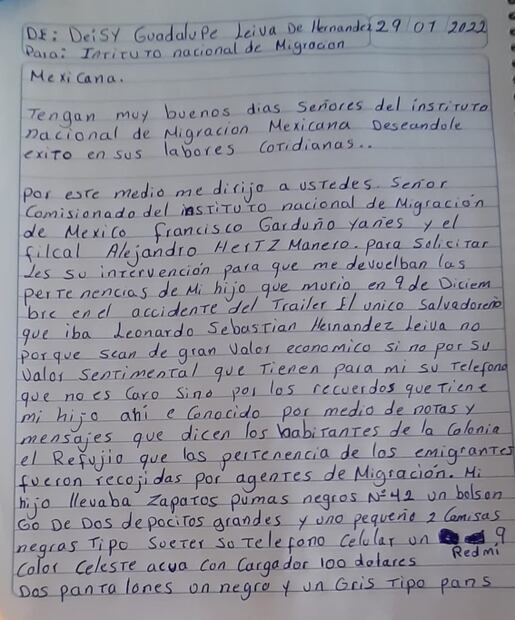 DE: Deisy Guadalupe Leiva De Hernandez 29/01/2022
Para: Intituto nacional de Migracion
Mexicana.
Tengan muy buenos dias Señores del instituto
nacional de Migracion Mexicana Deseandole
exito en sus labores cotidianas..
por este medio me dirijo a ustedes. Señor
Comisionado del instituto nacional de Migración
de Mexico francisco Garduño yañes y el
filcal Alejandro Hertz Manero. para solicitar
les su intervención para que me devuelban las
perte nencias de mi hijo que murio en 9 de Diciem
bre en el accidente del Trailer El unico Salvadoreño
que iba Leonardo Sebastian Hernandez Leiva no
porque sean de gran valor economico si no por su
valor sentimental que tienen para mi su telefono
que no es caro sino por los recuerdos que tiene
mi hijo ahi e conocido por medio de notas y
mensajes que dicen los habitantes de la colonia
el Refujio que las pertenencia de los emigrantes
fueron recojidas por agentes de Migración. Mi
hijo llevaba zapatos pumas negros Nº 42 un bolson
Go De Dos depocitos grandes y uno pequeño 2 camisas
negras tipo sueter su telefono celular un 9
Redmi
color celeste acua con cargador 100 dolares
Dos panta lones on negro y un Gris tipo pans